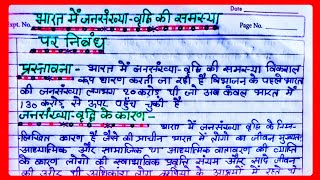 Expt. No.
Page No.
भारत में जनसंख्या-वृद्धि की समस्या
पर निबंध
प्रस्तावना - भारत में जनसंख्या-वृद्धि की समस्या विकराल
रूप धारण करती जा रही है विभाजन के पहले भारत
की जनसंख्या लगभग करोड़ थी जो अब केवल भारत में
130 करोड़ से ऊपर पहुँच चुकी है
जनसंख्या-वृद्धि के कारण - भारत में जनसंख्या वृद्धि के निम्न
लिखित कारण है जैसे की प्राचीन भारत में लोगो का जीवन
आध्यात्मिक और सामाजिक था आध्यात्मिक वातावरण की
के कारण लोगों की स्वाभाविक प्रवृत्ति संयम और जीवन
की ओर थी